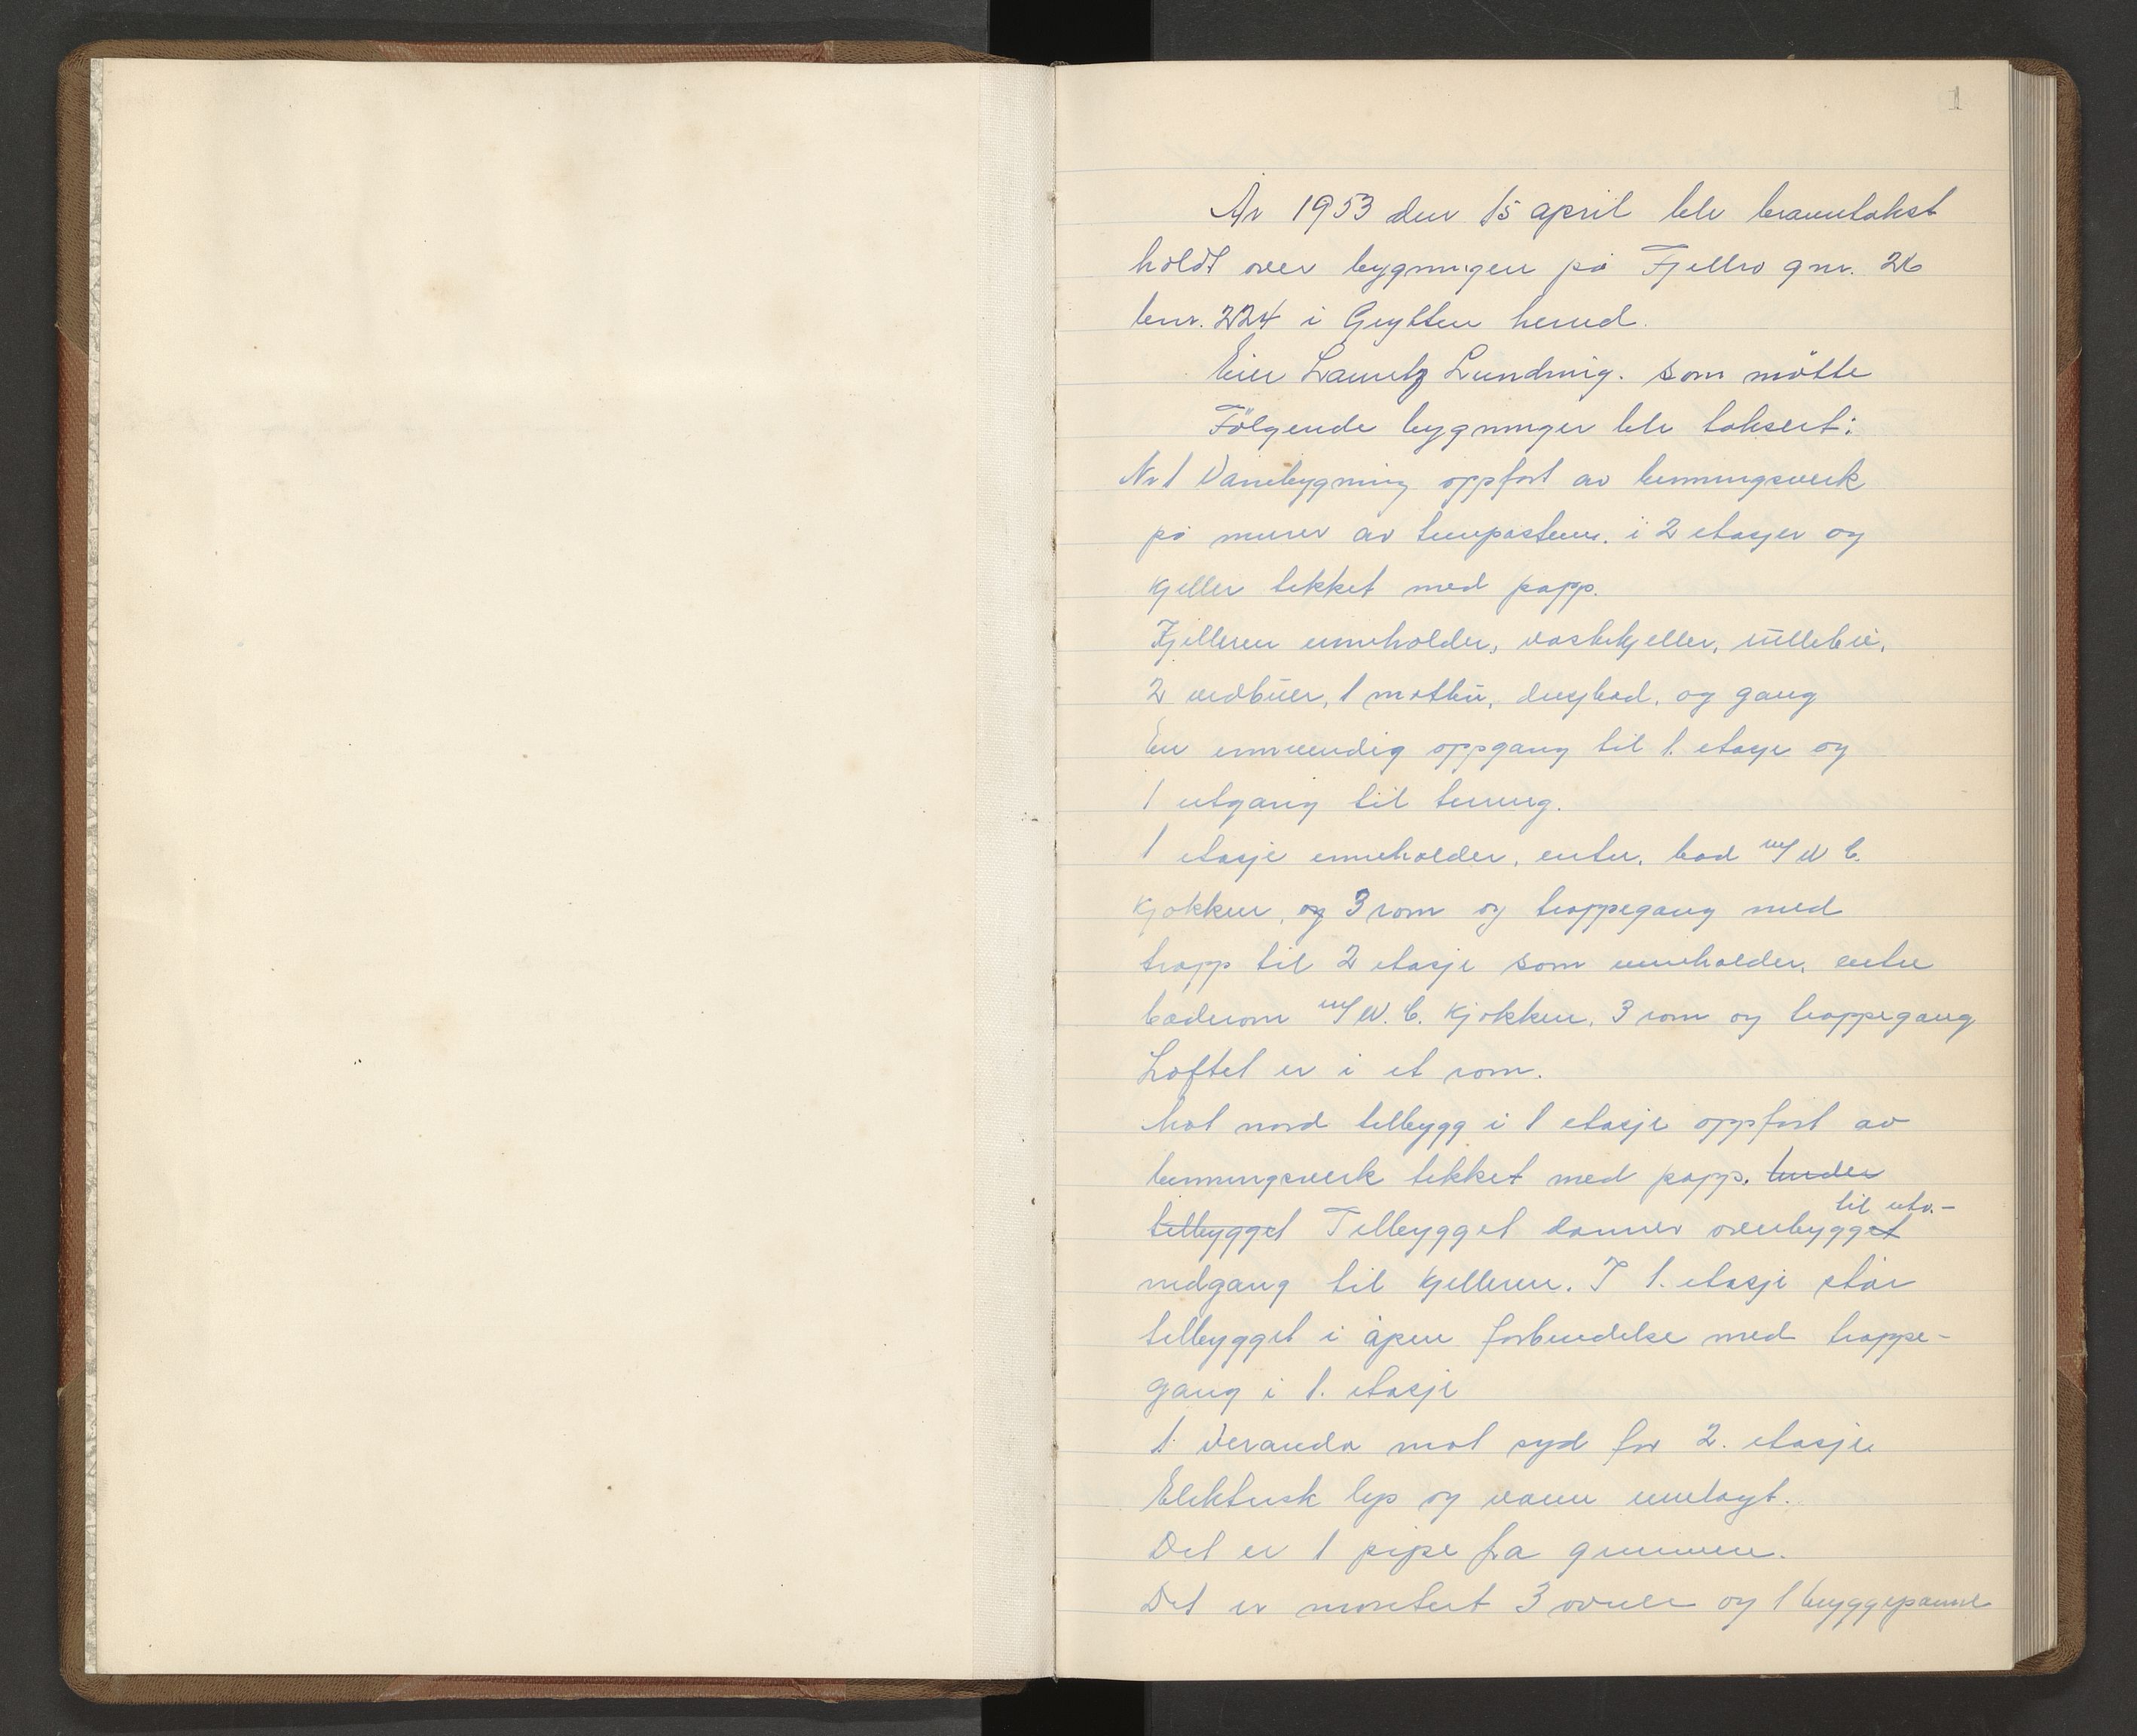 1
År 1953 den 15 april ble branntakst
holdt over bygningen på Fjellro gnr. 26
bnr. 224 i Grytten herred.
Eier Lauritz Lundmig. som møtte
Følgende bygninger ble taksert:
Nr 1 Vånebygning oppført av binningsverk
på murer av tempostein. i 2 etasjer og
kjeller tekket med papp.
Kjelleren inneholder, vaskekjeller, rullebu,
2 vedbuer, 1 matbu, dusjbad, og gang
En innvendig oppgang til 1. etasje og
1 utgang til terreng.
1 etasje inneholder, entre, bad m/ W C.
kjøkken, og 3 rom og trappegang med
trapp til 2 etasje som inneholder, entre
baderom m/ W. C. kjøkken, 3 rom og trappegang
Loftet er i et rom.
Mot nord tilbygg i 1 etasje oppført av
binningsverk tekket med papp. Under
til utv.-
tilbygget Tilbygget danner overbygget
nedgang til kjelleren. I 1. etasje står
tilbygget i åpen forbindelse med trappe-
gang i 1. etasje
1 veranda mot syd for 2. etasje
Elektrisk lys og vann innlagt.
Det er 1 pipe fra grunnen.
Det er montert 3 ovner og 1 bryggepanne